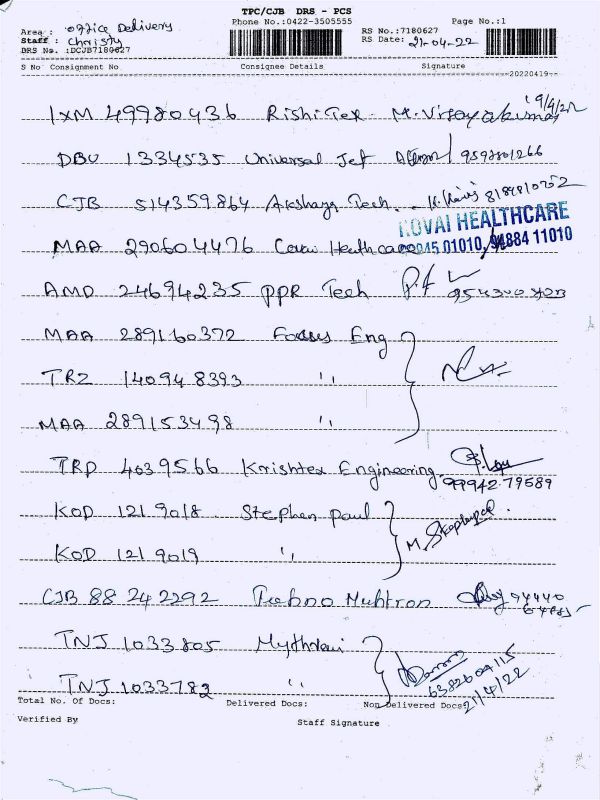 TPC/CJB DRS - PCS
Area : Office Delivery Phone No.:0422-3505555 Page No.:1
Staff : Christy RS No.:7180627
DRS No. :DCJB7180627 RS Date: 21-04-22
S No Consignment No. Consignee Details Signature
20220419
IXM 49980436 RishiTex M. Vijayakumar 19/4/22
DBU 1334535 Universal Jet 9597801266
CJB 514359864 Akshaya Tech.
KOVAI HEALTHCARE
MAA 290604476 Covai Heathcare 94884 11010
AMD 246942235 PPR Tech
MAA 289160372 Focus Eng
TRZ 140948393 "
MAA 289153498 "
TRP 4039566 Krishtex Engineering
99942-79589
KOD 1219018 Stephen paul M. Stephenpaul
KOD 1219019 "
CJB 88242292
TNJ 1033805 Mythravi
TNJ 1033782 " 6382604115
21/4/22
Total No. Of Docs: Delivered Docs: Non Delivered Docs:
Verified By Staff Signature